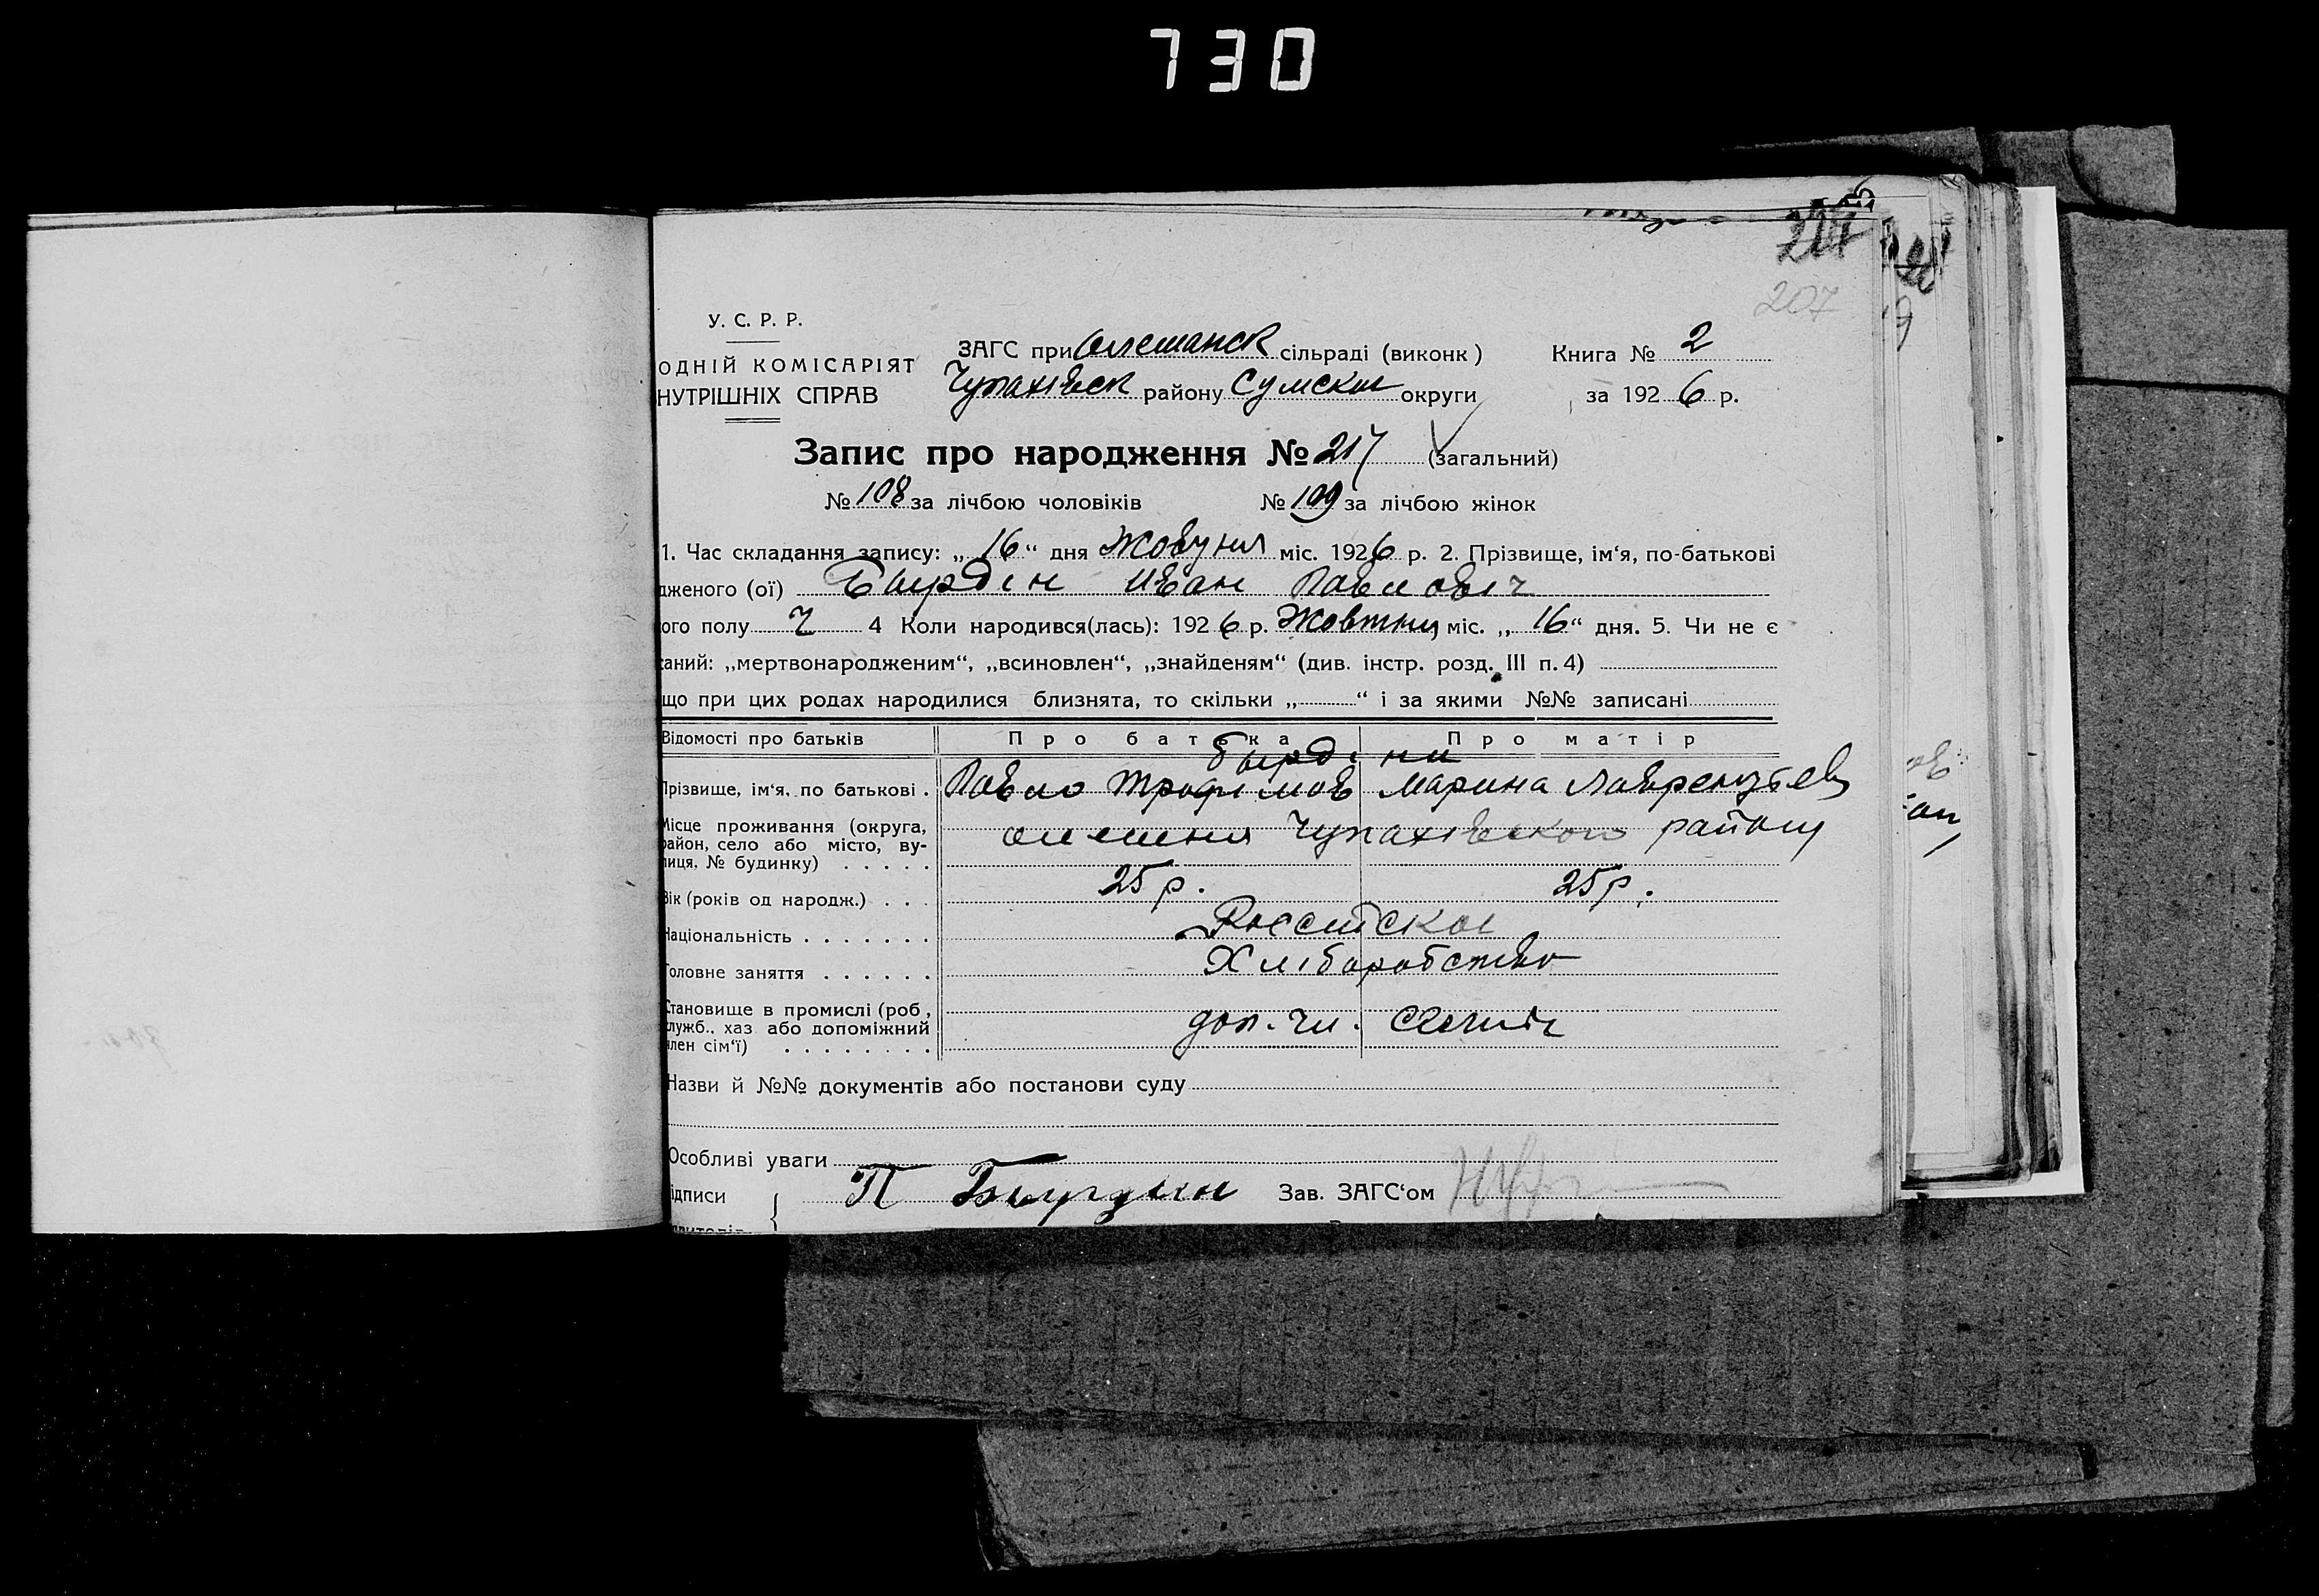 730
207
У. С. Р. Р.
ОДНІЙ КОМІСАРІЯТ
НУТРІШНІХ СПРАВ
ЗАГС при Олешанск сільраді (виконк) Книга № 2
Чупахівск району Сумскои округи за 1926 р.
Запис про народження № 217 (загальний)
№ 108 за лічбою чоловіків № 109 за лічбою жінок
1. Час складання запису: „16“ дня міс. 1926 р. 2. Прізвище, ім‘я, по-батькові
дженого (ої) Бырдін Иван Павловіч
ого полу Ч 4 Коли народився(лась): 1926 р. Жовтня міс. „16“ дня. 5. Чи не є
заний: „мертвонародженим“, „всиновлен“, „знайденям“ (див. інстр. розд. III п. 4)
що при цих родах народилися близнята, то скільки „ “ і за якими №№ записані
Відомості про батьків Про батька Про матір
Бырдіни
Прізвище, ім‘я, по батькові . Павло Трофімов Марина Лаврентьев
Місце проживання (округа, район, село або місто, вулиця, № будинку) . . . . . олешня Чупахівского району
Вік (років од народж.) . . . 25 р. 25 р.
Національність . . . . . . .
Головне заняття . . . . . . Хліборобство
Становище в промислі (роб, служб., хаз або допоміжний член сім‘ї) . . . . . . . . доп. чл.
Назви й №№ документів або постанови суду
Особливі уваги
ідписи { П Бырдин Зав. ЗАГС‘ом